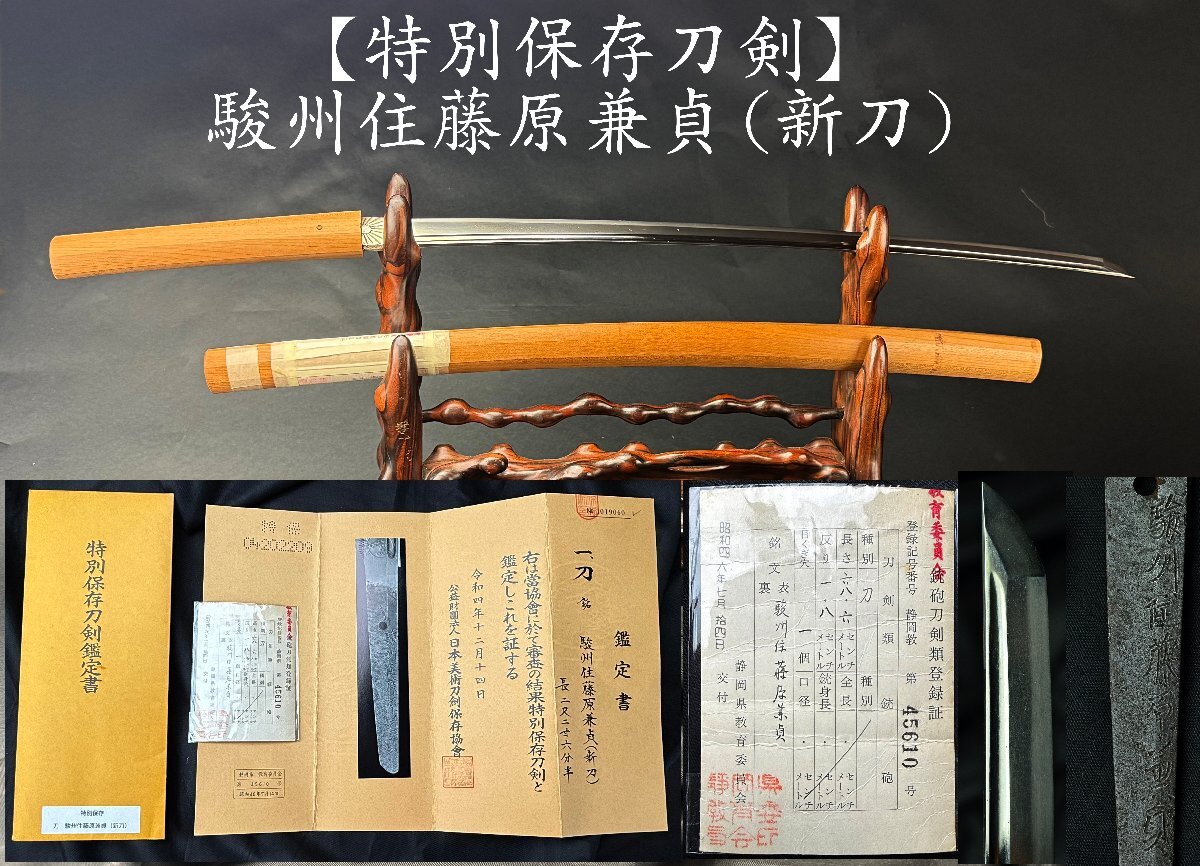 【特別保存刀剣】
駿州住藤原兼貞(新刀)
特別保存刀剣鑑定書
特別保存
刀 駿州住藤原兼貞(新刀)
No 019060
鑑定書
一、刀 銘 駿州住藤原兼貞(新刀)
長 二尺二寸六分半
右は當協會に於て審査の結果特別保存刀剣と
鑑定しこれを証する
令和四年十二月十四日
公益財團法人日本美術刀剣保存協會
04202209
45610
教育委員会
銃砲刀剣類登録証
登録記号番号 静岡教 第 45610 号
刀剣類 銃砲
種別 刀 種別
長さ 六八・六 センチメートル 全長 センチメートル
反り 一・八 センチメートル 銃身長 センチメートル
目くぎ穴 一個 口径 センチメートル
銘文 表 駿州住藤原兼貞
裏
昭和四六年七月拾四日 交付
静岡県教育委員会